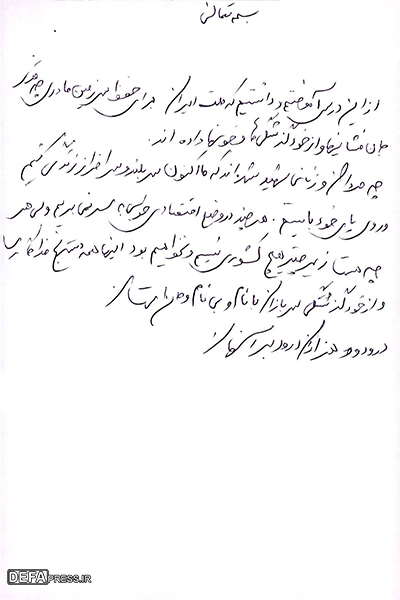 بسمه تعالی
از این درس آموختیم و دانستیم که ملت ایران برای حفظ این سرزمین مادری چه قدر
جان فشانی‌ها و از خود گذشتگی‌ها و خون‌ها داده اند.
چه مردان و زنانی شهید شده‌اند که ما اکنون سر بلند و سر افراز زندگی کنیم
و روی پای خود بایستیم. هر چند در وضع اقتصادی خوبی به سر نمی بریم ولی هر
چه هست زیر چتر هیچ کشوری نیستیم و نخواهیم بود اینها همه نتیجه فداکاری
و از خود گذشتگی سربازان با نام و بی نام وطن
درود و هزاران درود بر آنان
DEFAPRESS.IR